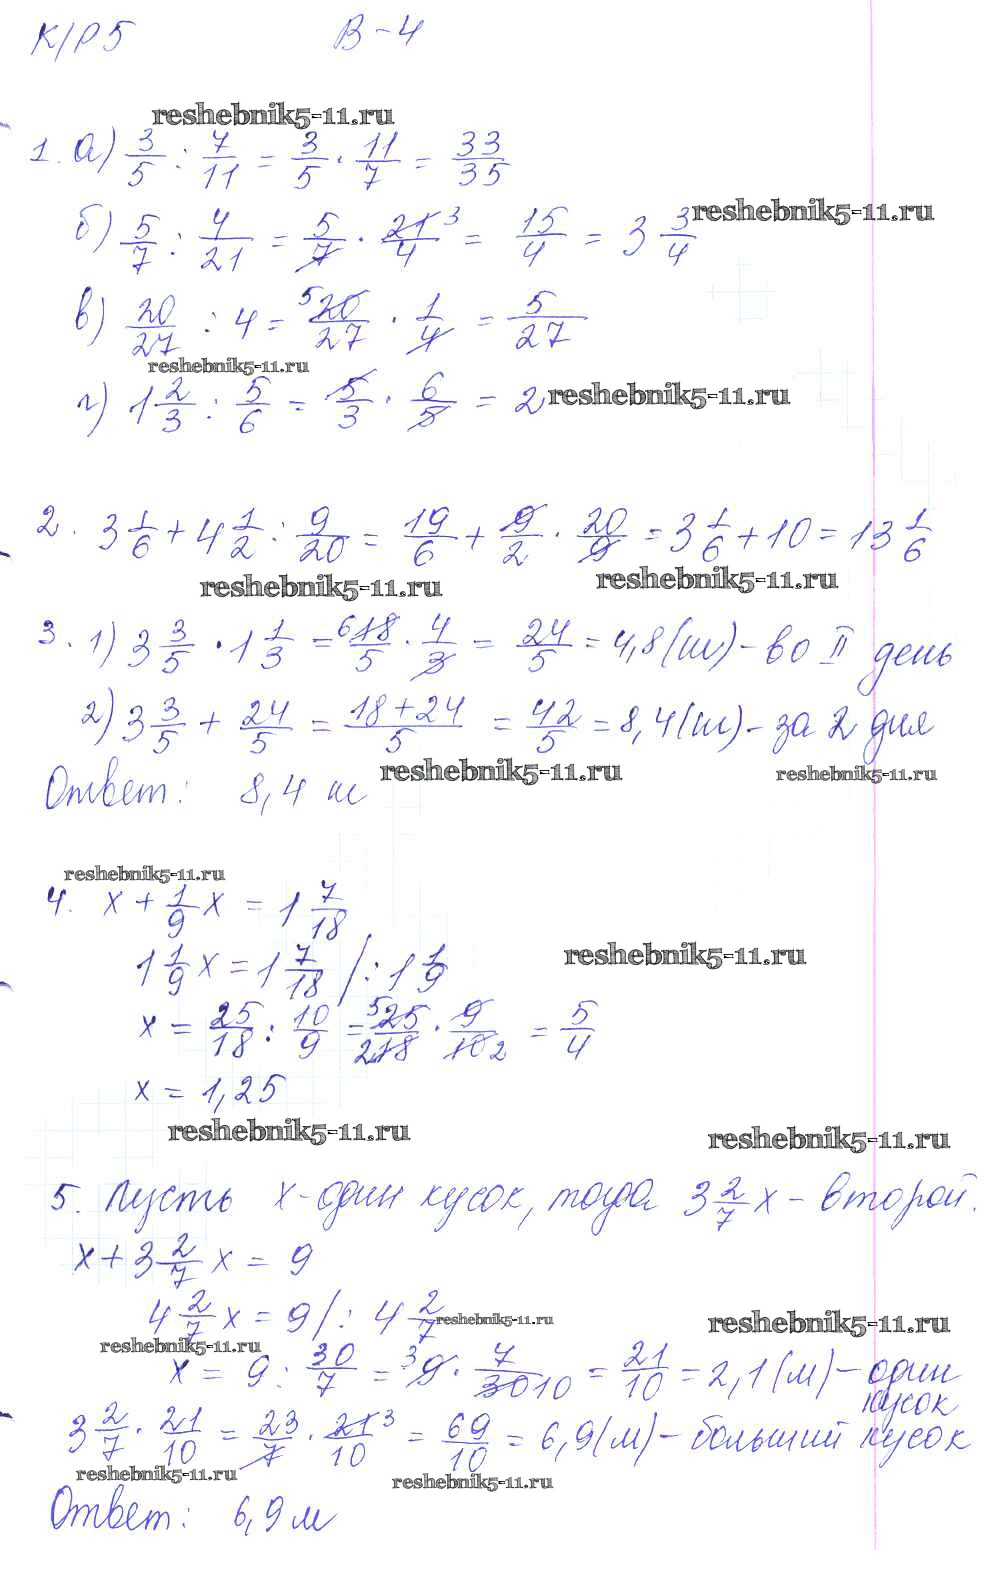 К/Р 5 В-4
reshebnik5-11.ru
1. а) 3/5 : 7/11 = 3/5 · 11/7 = 33/35
б) 5/7 : 4/21 = 5/7 · 21/4 3 = 15/4 = 3 3/4 reshebnik5-11.ru
в) 20/27 : 4 = 5 20/27 · 1/4 = 5/27
reshebnik5-11.ru
г) 1 2/3 : 5/6 = 5/3 · 6/5 = 2 reshebnik5-11.ru
2. 3 1/6 + 4 1/2 : 9/20 = 19/6 + 9/2 · 20/9 = 3 1/6 + 10 = 13 1/6
reshebnik5-11.ru reshebnik5-11.ru
3. 1) 3 3/5 · 1 1/3 = 6 18/5 · 4/3 = 24/5 = 4,8 (ш) - во II день
2) 3 3/5 + 24/5 = 18+24/5 = 42/5 = 8,4 (ш) - за 2 дня
reshebnik5-11.ru reshebnik5-11.ru
Ответ: 8,4 ш
reshebnik5-11.ru
4. x + 1/9 x = 1 7/18
1 1/9 x = 1 7/18 /: 1 1/9 reshebnik5-11.ru
x = 25/18 : 10/9 = 5 25/2 18 · 9/10 2 = 5/4
x = 1,25
reshebnik5-11.ru reshebnik5-11.ru
5. Пусть x - один кусок, тогда 3 2/7 x - второй.
x + 3 2/7 x = 9
4 2/7 x = 9 /: 4 2/7 reshebnik5-11.ru reshebnik5-11.ru
reshebnik5-11.ru
x = 9 : 30/7 = 3 9 · 7/30 10 = 21/10 = 2,1 (м) - один
кусок
3 2/7 · 21/10 = 23/7 · 21/10 3 = 69/10 = 6,9 (м) - больший кусок
reshebnik5-11.ru reshebnik5-11.ru
Ответ: 6,9 м